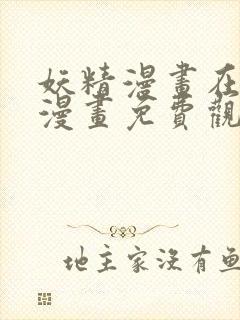 妖精漫畫在
漫畫免費觀
地主家沒有魚